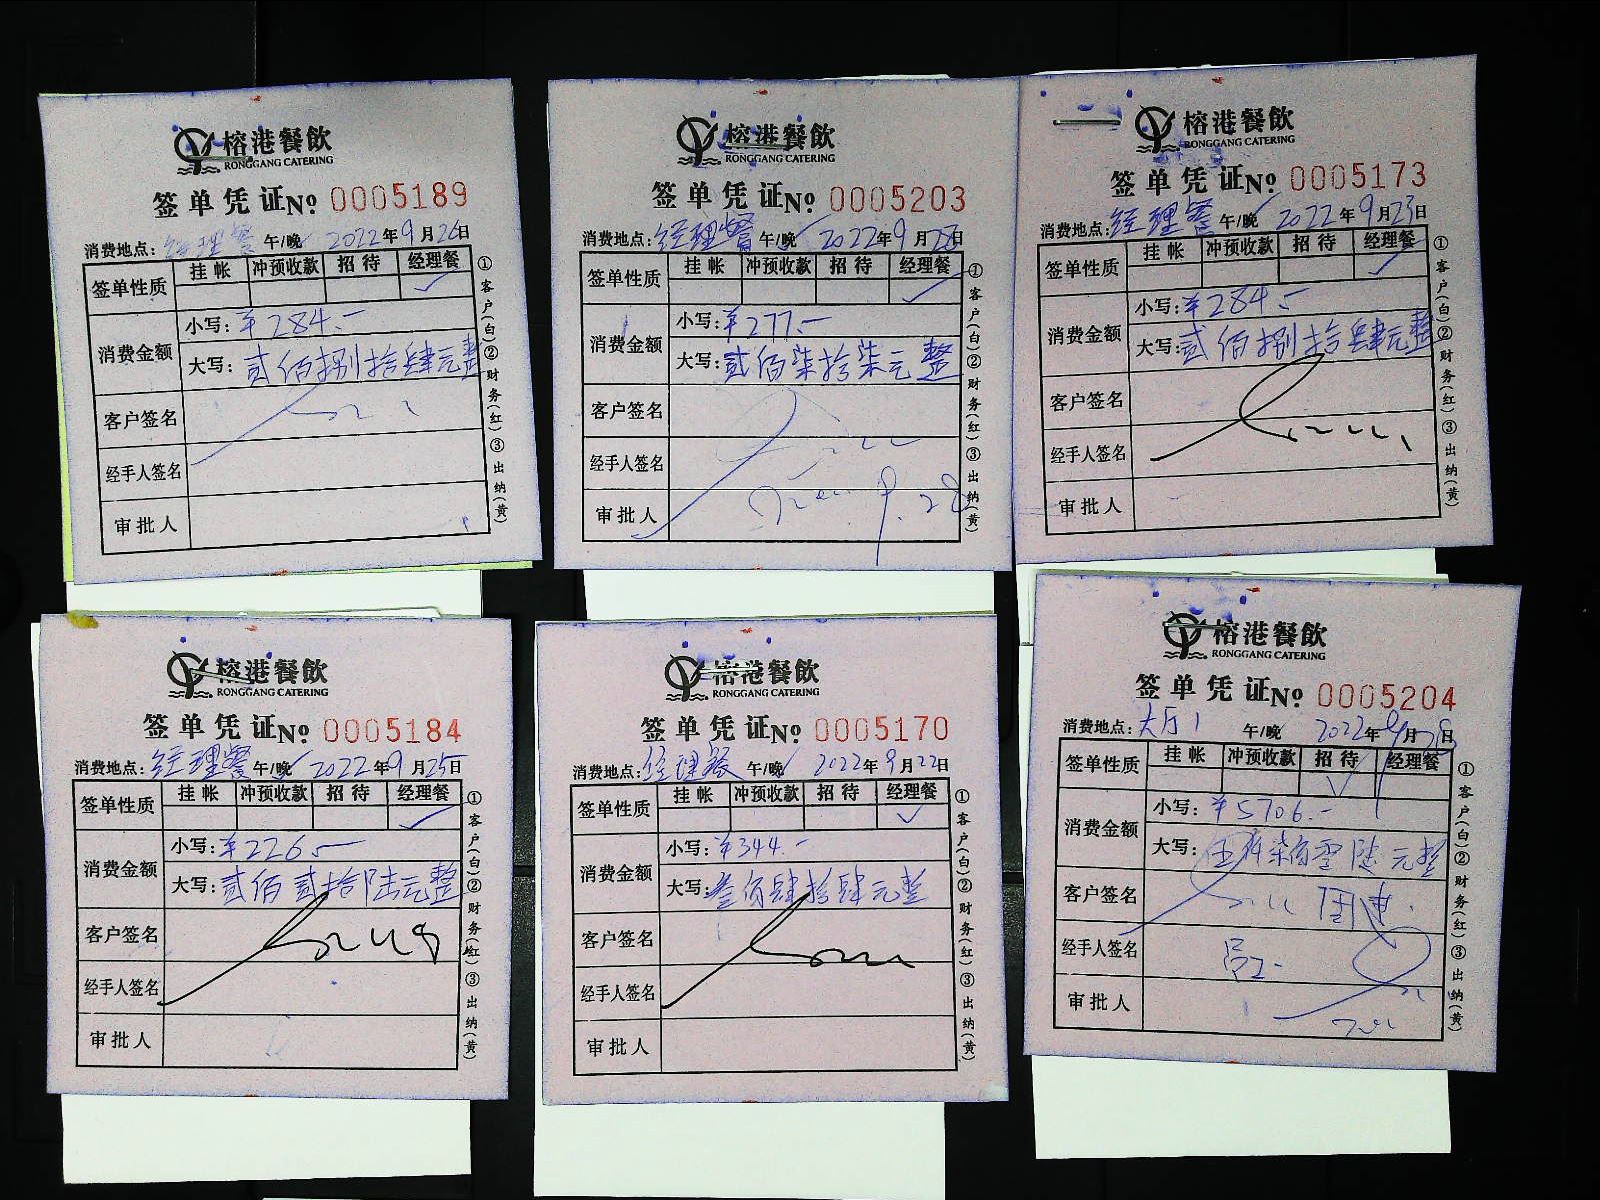 榕港餐飲
RONGGANG CATERING
签单凭证№ 0005189
消费地点：经理餐 午/晚 2022年9月26日
签单性质 挂帐 冲预收款 招待 经理餐
✓
消费金额
小写：¥284.-
大写：贰佰捌拾肆元整
客户签名
经手人签名
审批人
①客户(白)②财务(红)③出纳(黄)
榕港餐飲
RONGGANG CATERING
签单凭证№ 0005203
消费地点：经理餐 午/晚 2022年9月28日
签单性质 挂帐 冲预收款 招待 经理餐
✓
消费金额
小写：¥277.-
大写：贰佰柒拾柒元整
客户签名
经手人签名
审批人 9.28
①客户(白)②财务(红)③出纳(黄)
榕港餐飲
RONGGANG CATERING
签单凭证№ 0005173
消费地点：经理餐 午/晚 2022年9月23日
签单性质 挂帐 冲预收款 招待 经理餐
✓
消费金额
小写：¥284.-
大写：贰佰捌拾肆元整
客户签名
经手人签名
审批人
①客户(白)②财务(红)③出纳(黄)
榕港餐飲
RONGGANG CATERING
签单凭证№ 0005184
消费地点：经理餐 午/晚 2022年9月25日
签单性质 挂帐 冲预收款 招待 经理餐
✓
消费金额
小写：¥226.-
大写：贰佰贰拾陆元整
客户签名
经手人签名
审批人
①客户(白)②财务(红)③出纳(黄)
榕港餐飲
RONGGANG CATERING
签单凭证№ 0005170
消费地点：经理餐 午/晚 2022年9月22日
签单性质 挂帐 冲预收款 招待 经理餐
✓
消费金额
小写：¥344.-
大写：叁佰肆拾肆元整
客户签名
经手人签名
审批人
①客户(白)②财务(红)③出纳(黄)
榕港餐飲
RONGGANG CATERING
签单凭证№ 0005204
消费地点：大厅1 午/晚 2022年9月28日
签单性质 挂帐 冲预收款 招待 经理餐
✓
消费金额
小写：¥5706.-
大写：伍仟柒佰零陆元整
客户签名
经手人签名
审批人
①客户(白)②财务(红)③出纳(黄)